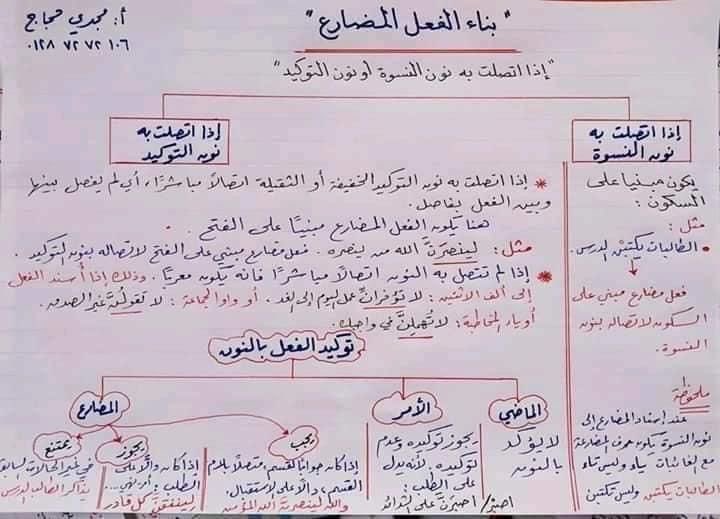 "بناء الفعل المضارع"
أ. مجدي حجاج
٠١٢٨ ٧٢ ٧٢ ١٠٦
"إذا اتصلت به نون النسوة أو نون التوكيد"
إذا اتصلت به
نون النسوة
يكون مبنيا على
السكون:
مثل:
الطالبات يكتبْن الدرس.
فعل مضارع مبني على
السكون لاتصاله بنون
النسوة.
ملحوظة
عند إسناد المضارع إلى
نون النسوة يكون حرف المضارعة
مع الغائبات ياء وليس تاء
الطالبات يكتبن وليس تكتبن
إذا اتصلت به
نون التوكيد
* إذا اتصلت به نون التوكيد الخفيفة أو الثقيلة اتصالًا مباشرًا، أي لم يفصل بينها
وبين الفعل بفاصل.
هنا يكون الفعل المضارع مبنيًا على الفتح.
مثل: لينصرَنَّ الله من ينصره. فعل مضارع مبني على الفتح لاتصاله بنون التوكيد.
* إذا لم تتصل به النون اتصالًا مباشرًا فانه يكون معربًا. وذلك إذا أسند الفعل
إلى ألف الاثنين: لا تؤخرانِّ عمل اليوم إلى الغد. أو واو الجماعة: لا تقولُنَّ غير الصدق.
أو ياء المخاطبة: لا تهملِنَّ في واجبك.
توكيد الفعل بالنون
الماضي
لا يؤكد
بالنون
الأمر
يجوز توكيده وعدم
توكيده. لأنه يدل
على الطلب:
اصبر/ اصبرَنَّ على الشدائد
المضارع
يجب
إذا كان جوابًا لقسم، متصلًا بلام
القسم، دالًا على الاستقبال.
والله لينصرنَّ الله المؤمن
يجوز
إذا كان دالًا على
الطلب: أو نفي...
لينفقَنَّ كل قادر
يمتنع
في غير الحالات السابقة
يذاكر الطالب الدرس